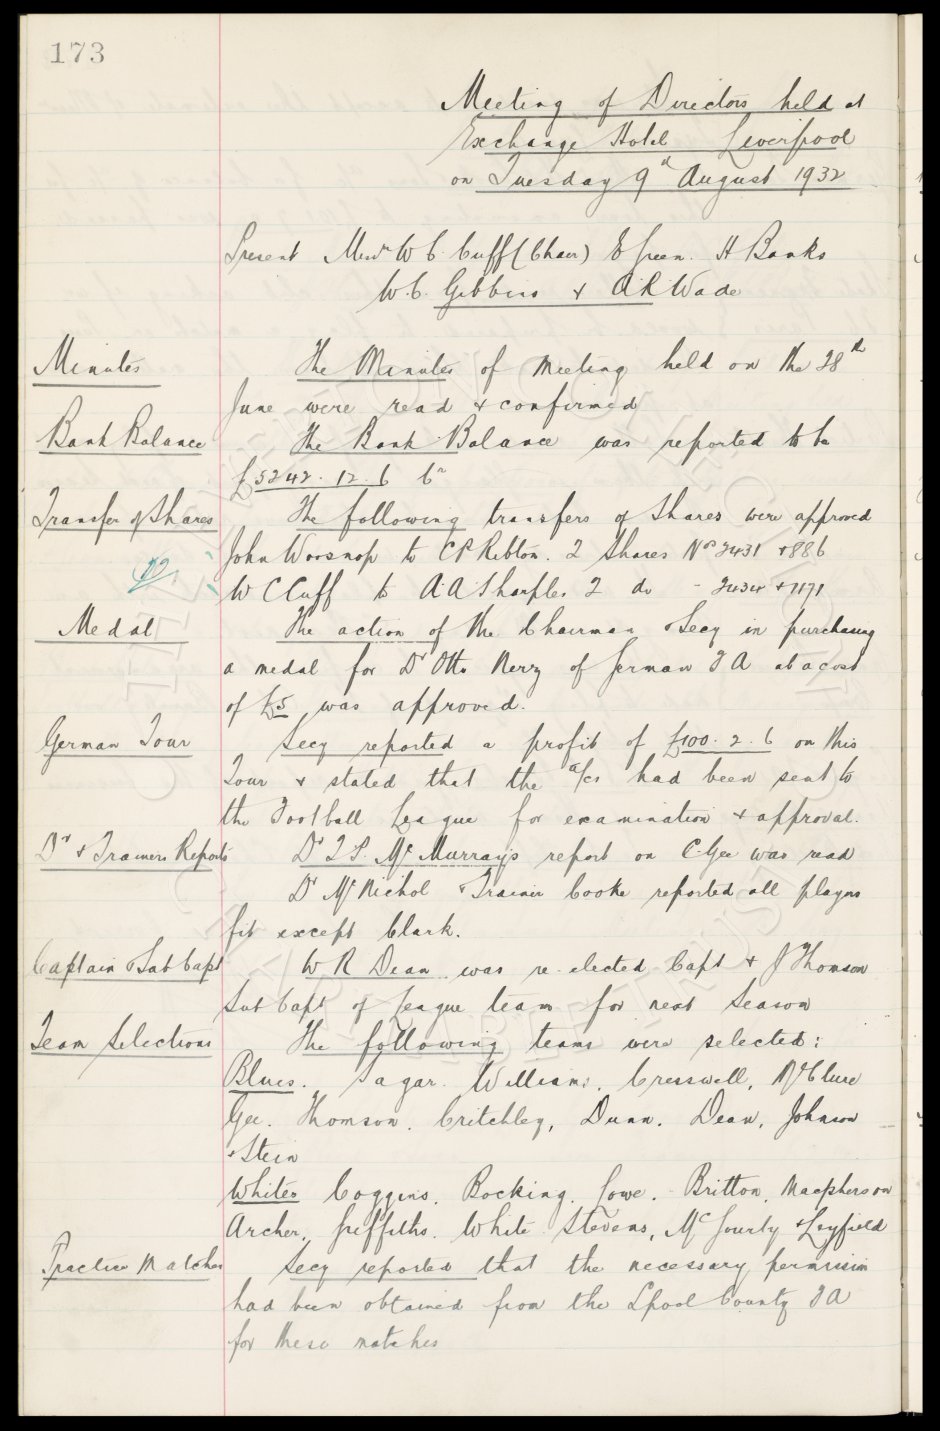 173
Meeting of Directors held at
Exchange Hotel Liverpool
on Tuesday 9th August 1932
Present Messrs W C Cuff (Chair) E Green. H Banks
W.C. Gibbins & A.R Wade
Minutes
The Minutes of meeting held on the 28th
June were read & confirmed
Bank Balance
The Bank Balance was reported to be
£5242.12.6 Cr
Transfer of Shares
The following transfers of Shares were approved
John Worsnop to C P Ribton. 2 Shares Nos 2431 & 886
W C Cuff to A.A Sharples 2 do - 2434 & 1171
Medal
The action of the Chairman & Secy in purchasing
a medal for Dr Otto Nerz of German F A at a cost
of £5 was approved.
German Tour
Secy reported a profit of £100.2.6 on this
Tour & stated that the a/cs had been sent to
the Football League for examination & approval.
Dr & Trainers Reports
Dr T.S. McMurray's report on C Gee was read
Dr McNichol & Trainer Cooke reported all players
fit except Clark.
Captain & Sub Capt
W R Dean was re-elected Capt & J Thomson
Sub Capt of League team for next Season
Team Selections
The following teams were selected:
Blues. Sagar. Williams, Cresswell, McClure
Gee. Thomson. Critchley, Dunn. Dean, Johnson
& Stein
Whites Coggins. Bocking. Lowe. Britton, Macpherson
Archer, Griffiths. White Stevens, McGourty & Leyfield
Practice Matches
Secy reported that the necessary permission
had been obtained from the Lpool County F A
for these matches